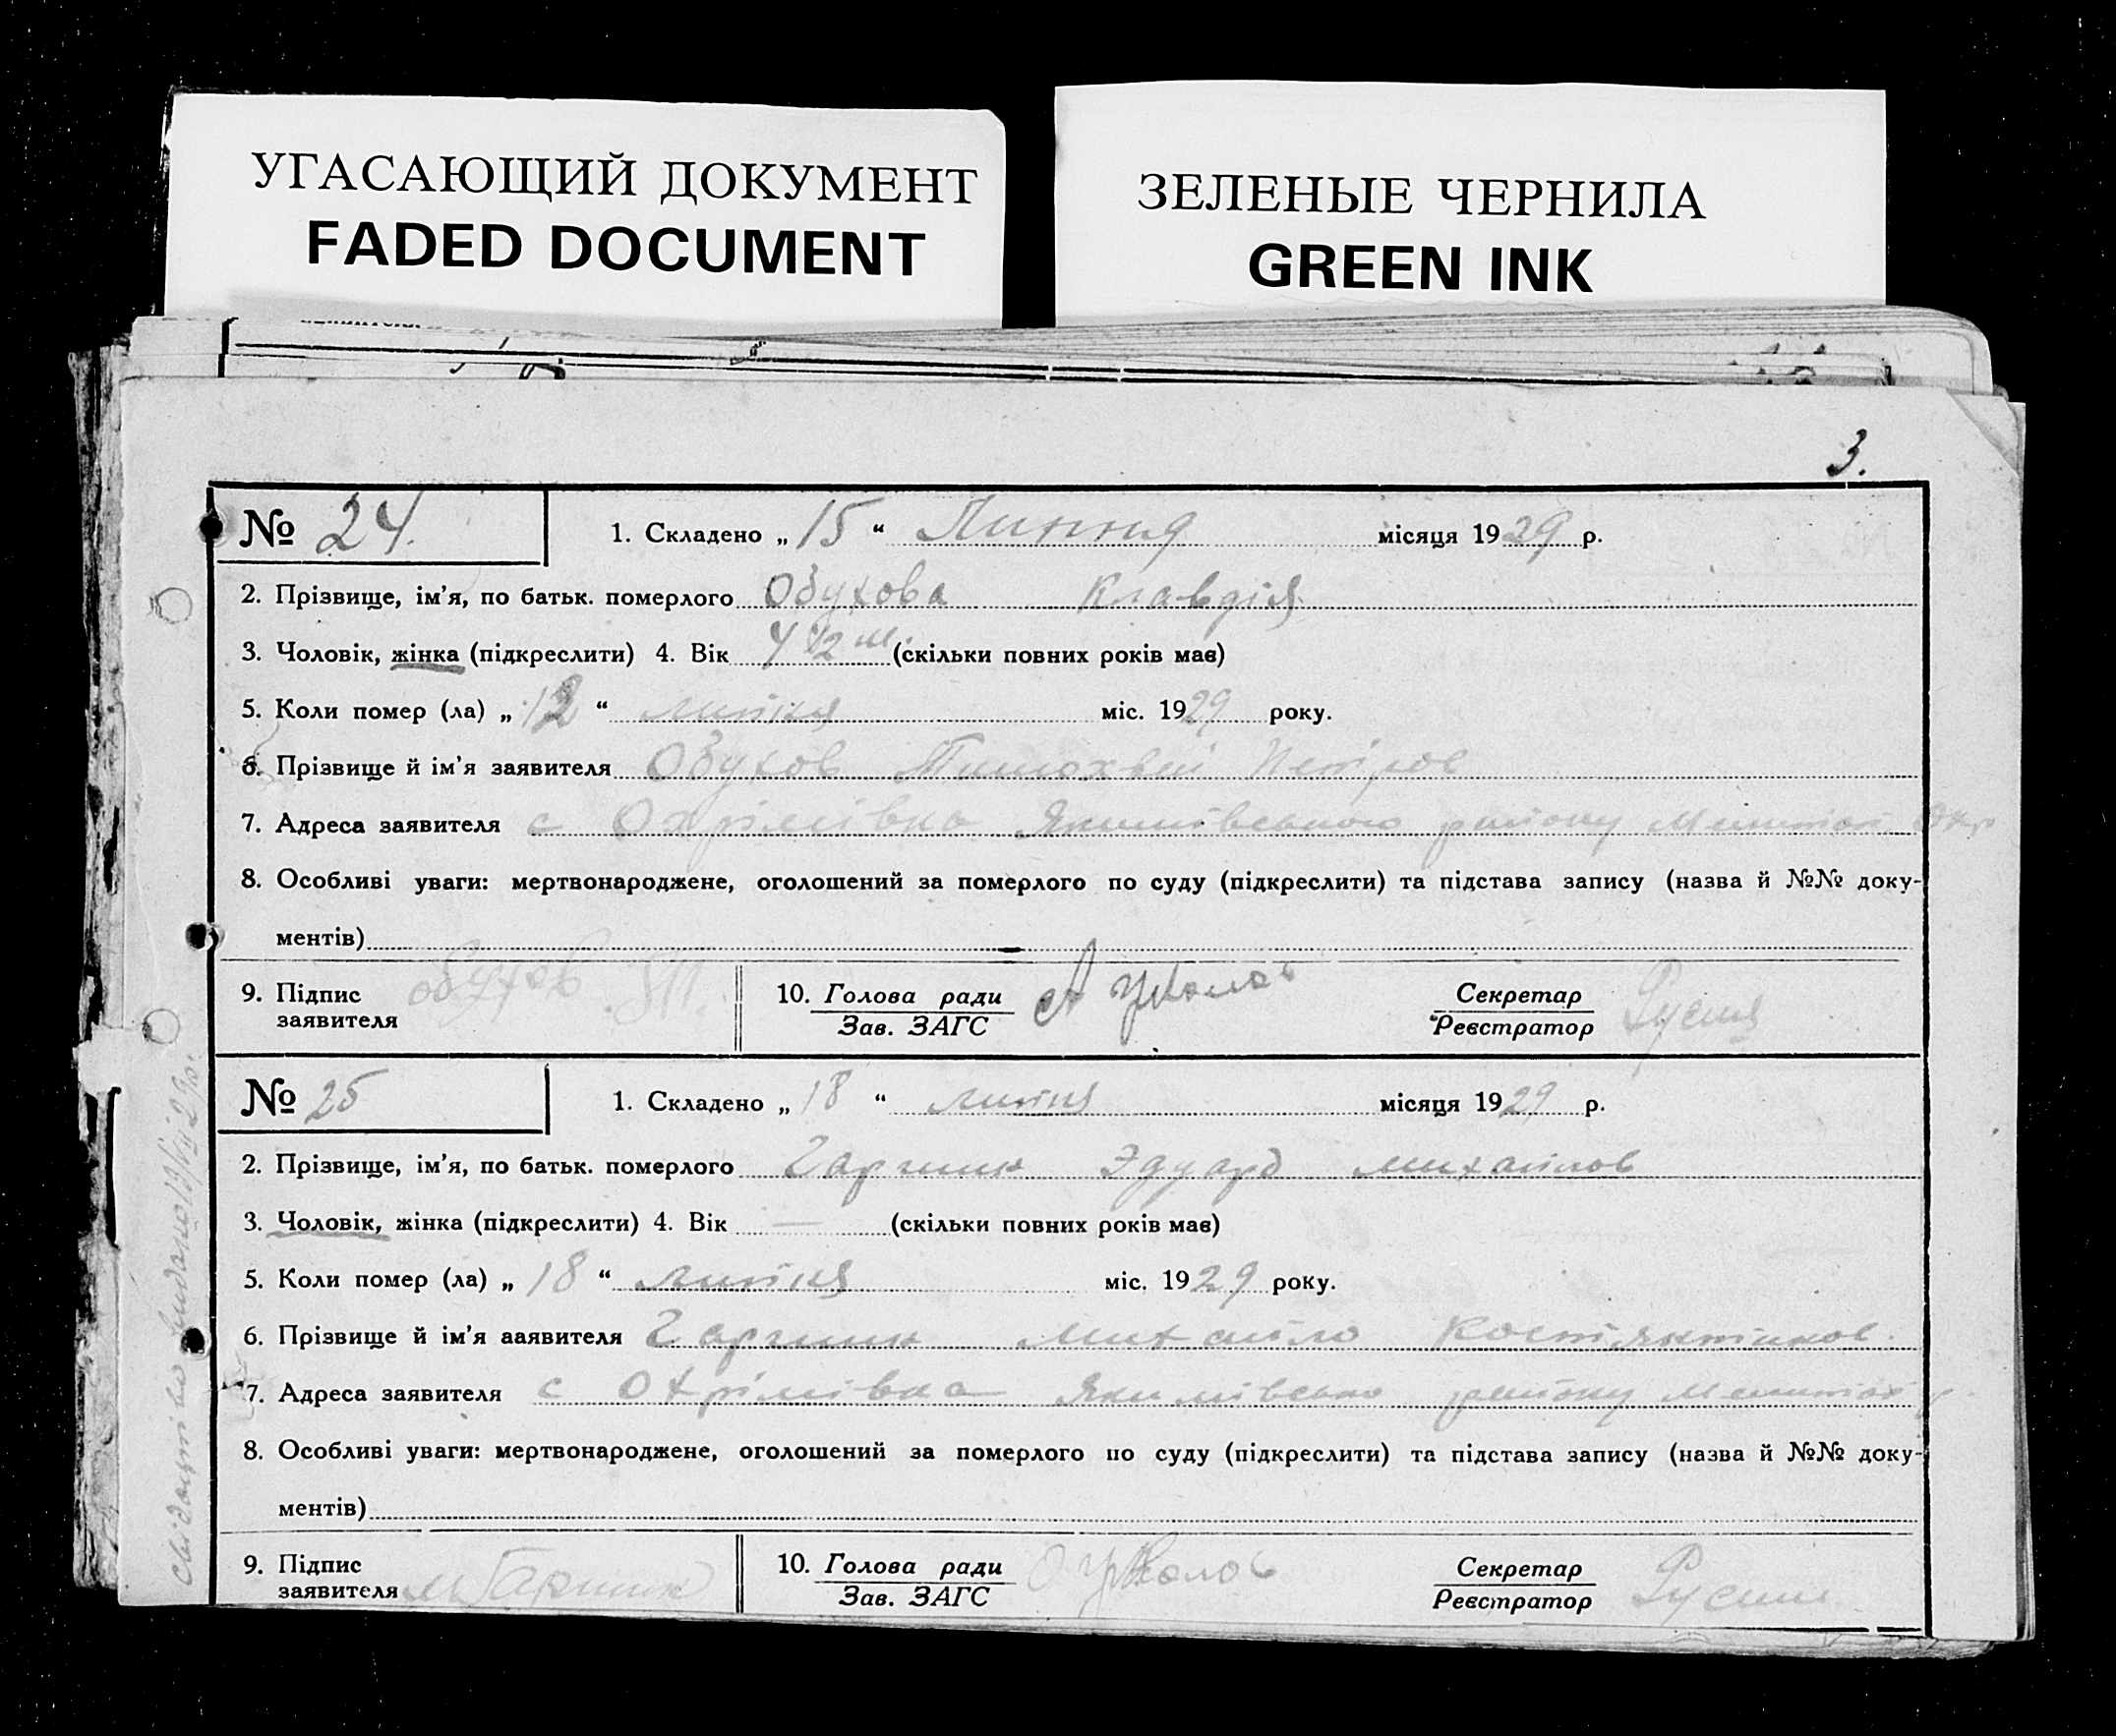 УГАСАЮЩИЙ ДОКУМЕНТ
FADED DOCUMENT
ЗЕЛЕНЫЕ ЧЕРНИЛА
GREEN INK
3.
№ 24. 1. Складено „ 15 “ Липня місяця 1929 р.
2. Прізвище, ім'я, по батьк. померлого Обухова Клавдія
3. Чоловік, жінка (підкреслити) 4. Вік (скільки повних років має)
5. Коли помер (ла) „ 12 “ липня міс. 1929 року.
6. Прізвище й ім'я заявителя Обухов Тимохвій Петров
7. Адреса заявителя с Охрімівка Якимівського району Мелитоп. Окр
8. Особливі уваги: мертвонароджене, оголошений за померлого по суду (підкреслити) та підстава запису (назва й №№ доку-
ментів)
9. Підпис заявителя Обухов 10. Голова ради Зав. ЗАГС Секретар Реєстратор
№ 25 1. Складено „ 18 “ липня місяця 1929 р.
2. Прізвище, ім'я, по батьк. померлого Гаршин Эдуард Михайлов
3. Чоловік, жінка (підкреслити) 4. Вік — (скільки повних років має)
5. Коли помер (ла) „ 18 “ липня міс. 1929 року.
6. Прізвище й ім'я ааявителя Гаршин Михайло Костянтинов.
7. Адреса заявителя с Охрімівка району
8. Особливі уваги: мертвонароджене, оголошений за померлого по суду (підкреслити) та підстава запису (назва й №№ доку-
ментів)
9. Підпис заявителя М Гаршин 10. Голова ради Зав. ЗАГС Секретар Реєстратор